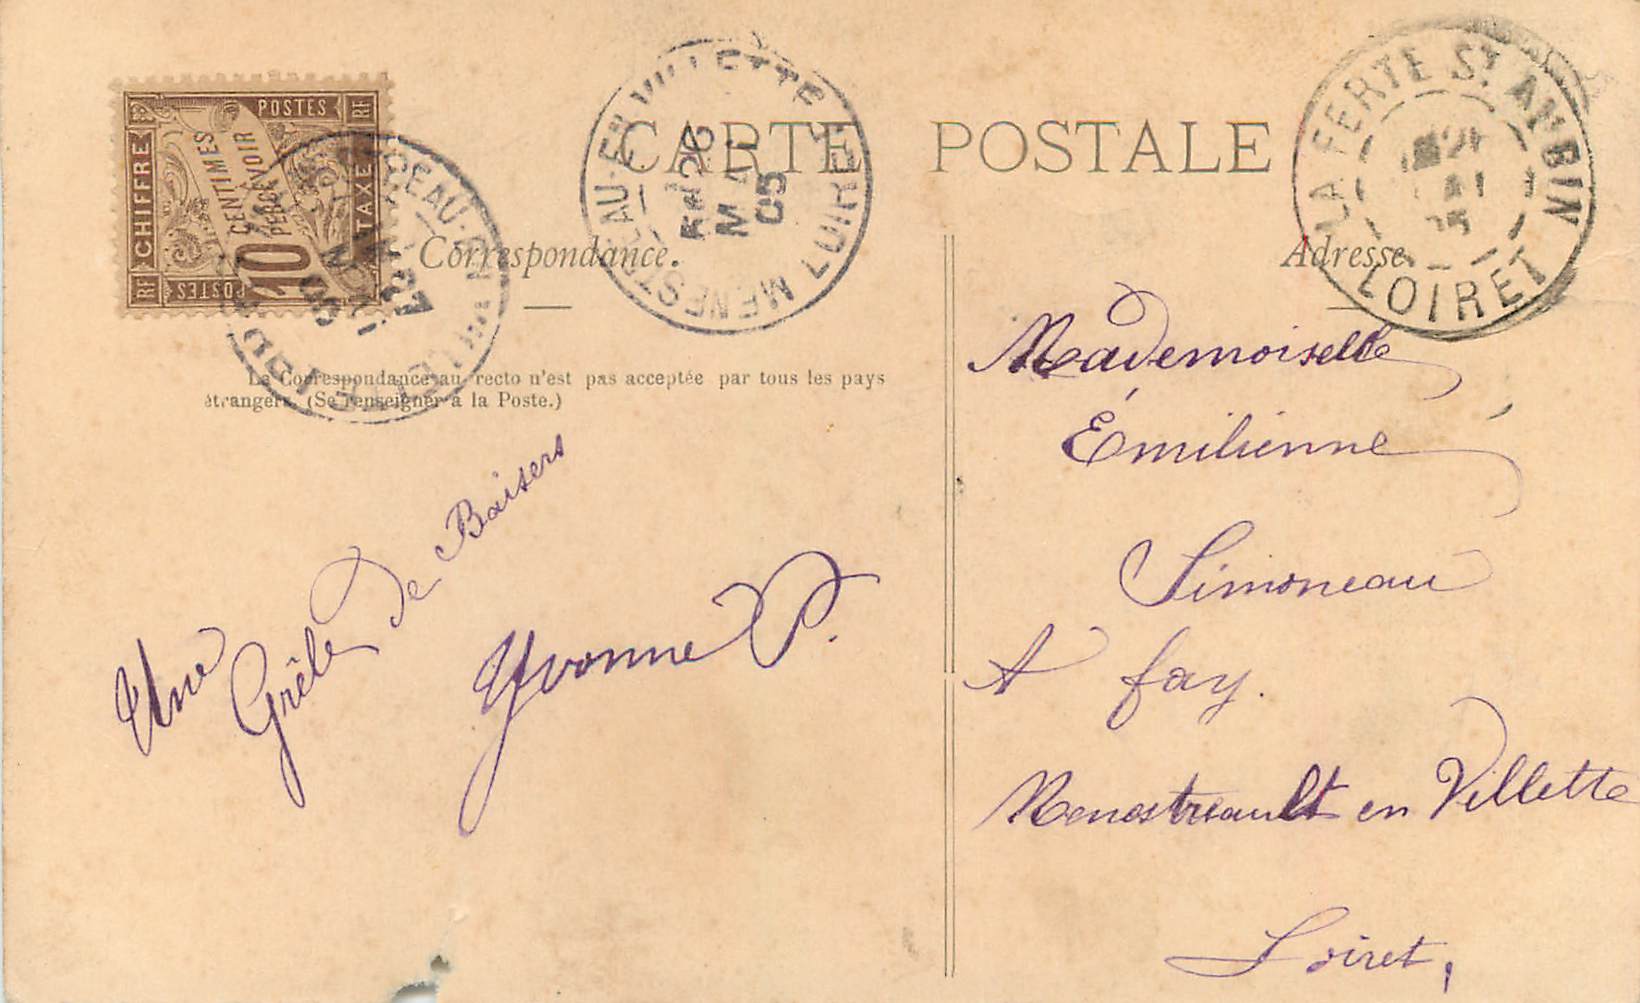 CHIFFRE
POSTES
TAXE
POSTES
RF
RF
CENTIMES
A PERCEVOIR
10
MENESTREAU-EN-VILLETTE
LOIRET
26
MAI
05
LA FERTE ST AUBIN
LOIRET
CARTE POSTALE
Correspondance.
Adresse
La Correspondance au recto n'est pas acceptée par tous les pays
étrangers. (Se renseigner à la Poste.)
Une Grêle de Baisers
Yvonne P.
Mademoiselle
Émilienne
Simoneau
A fay.
Menestreault en Villette
Loiret,